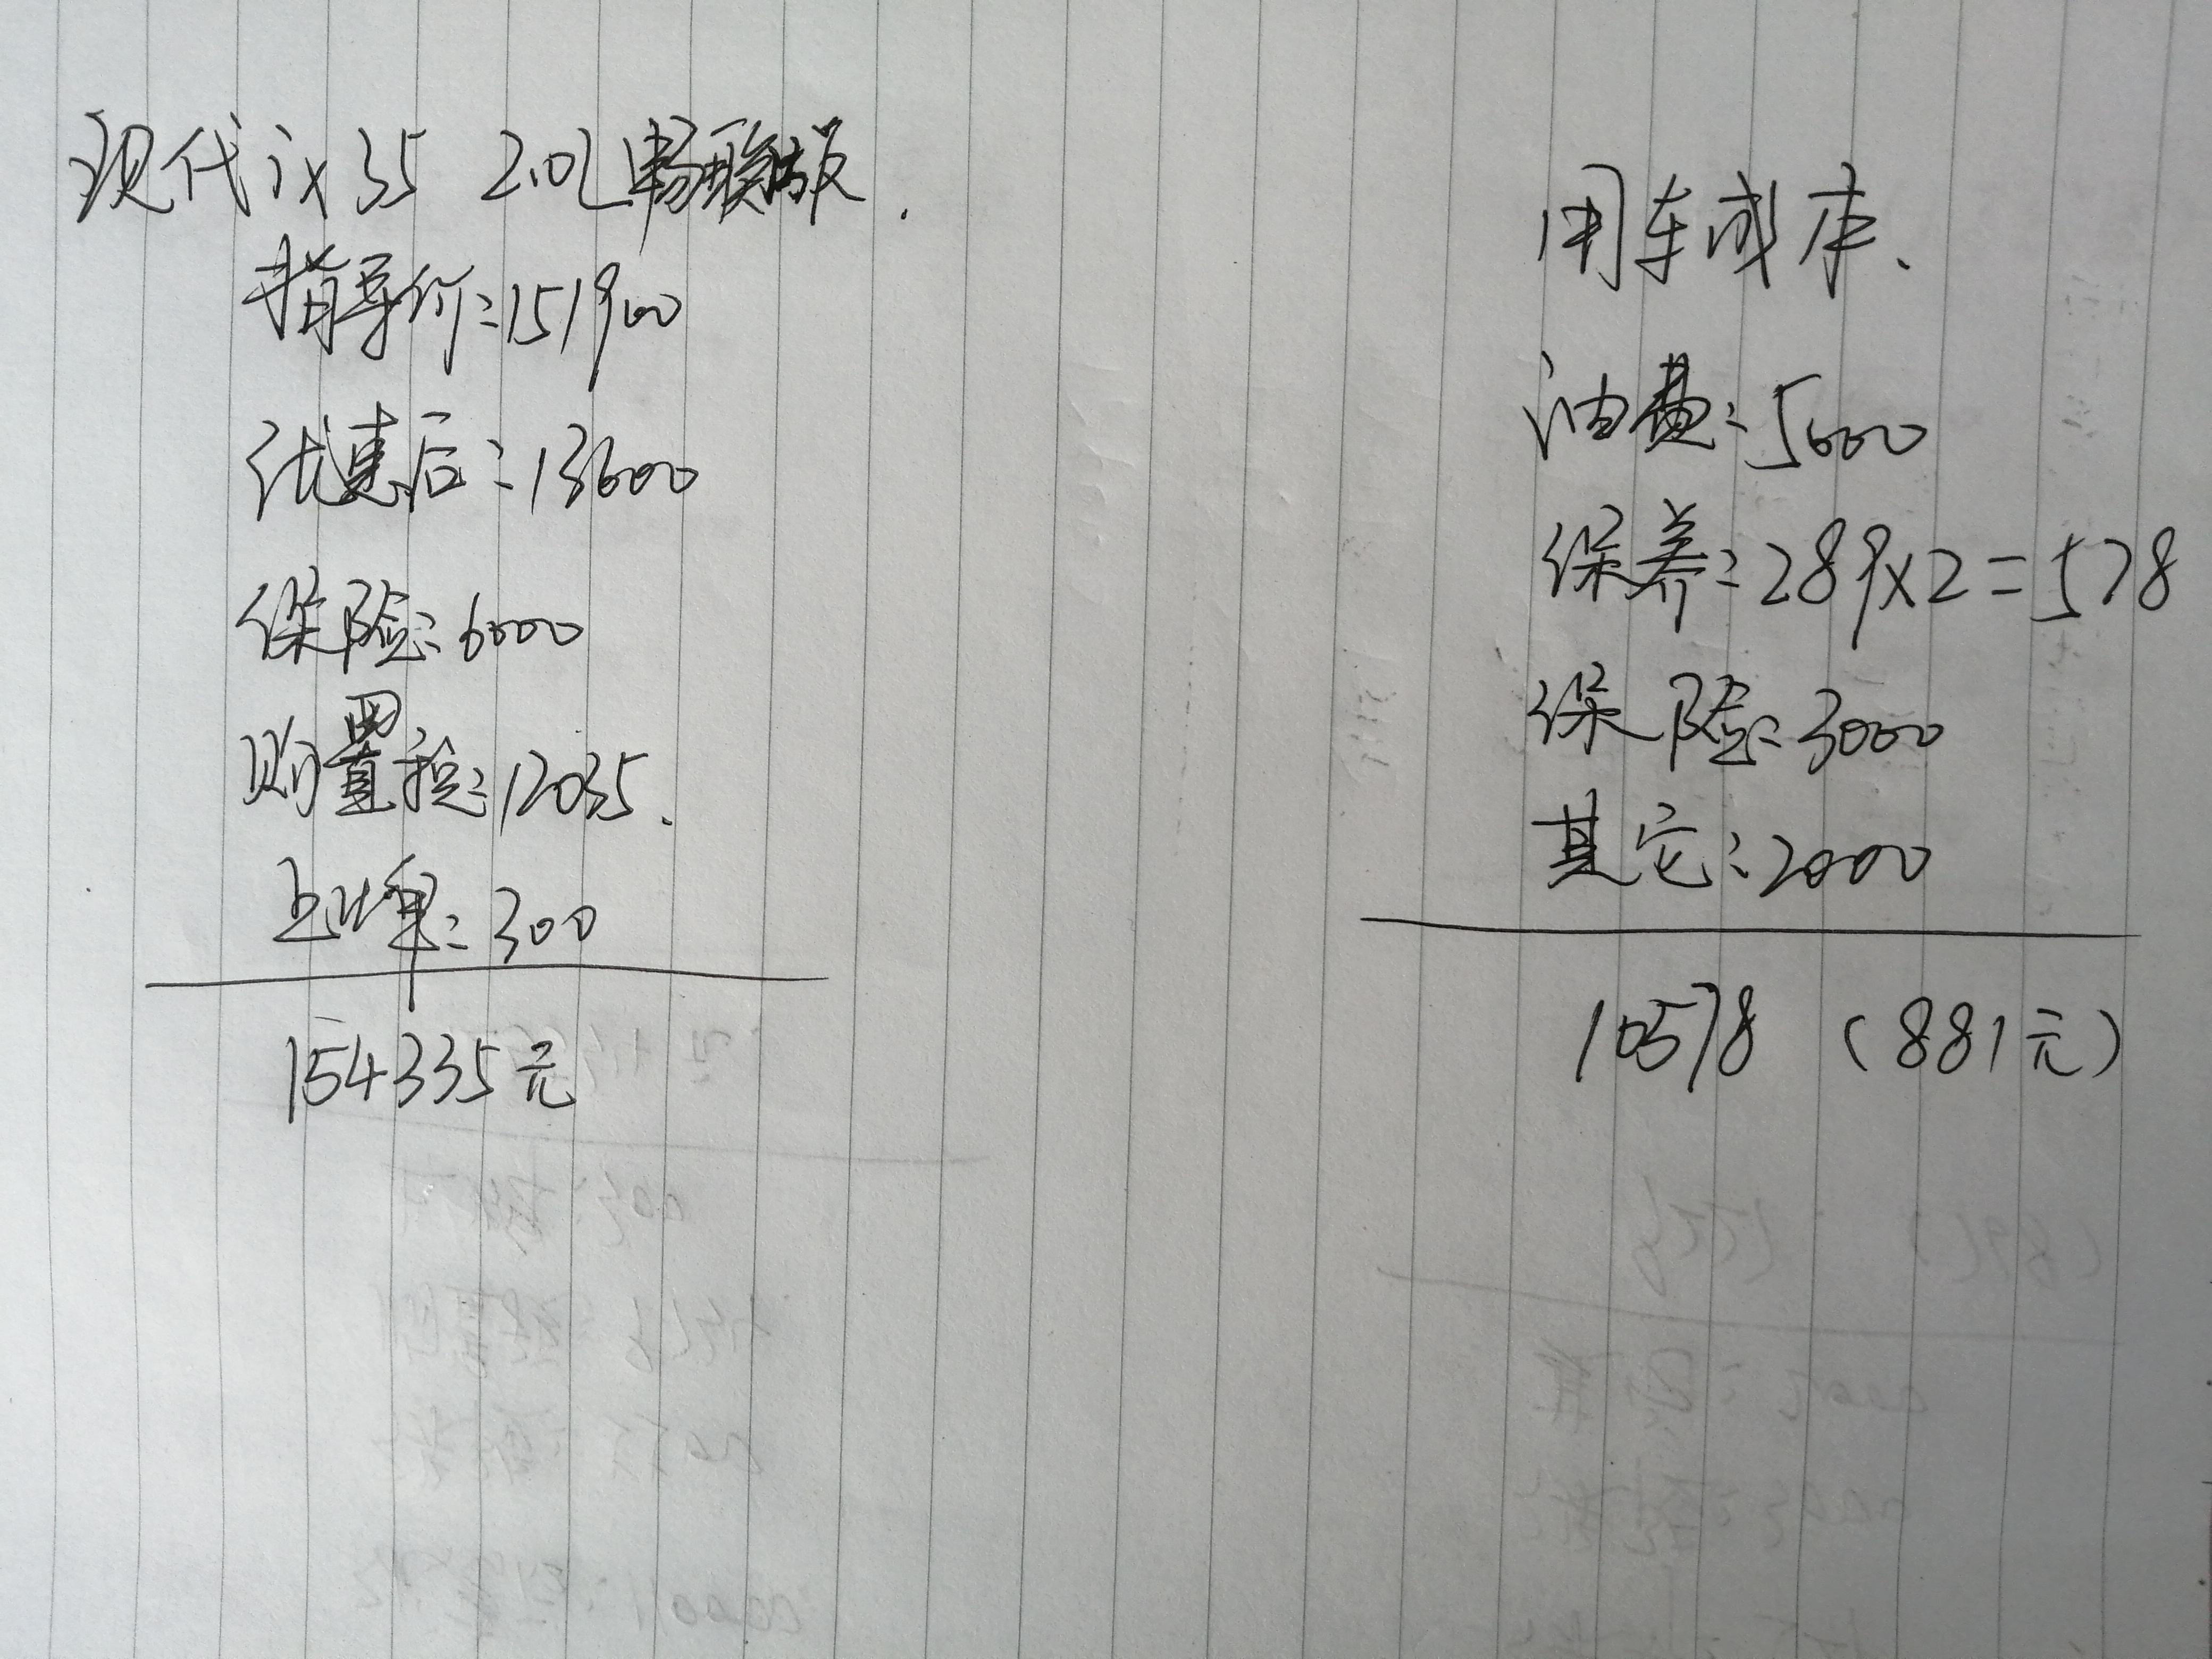 现代ix35 2.0L畅联版.
指导价:151900
优惠后:13600
保险:6000
购置税:12035.
上牌:300
154335元
用车成本.
油费:5000
保养:289x2=578
保险:3000
其它:2000
10578 (881元)